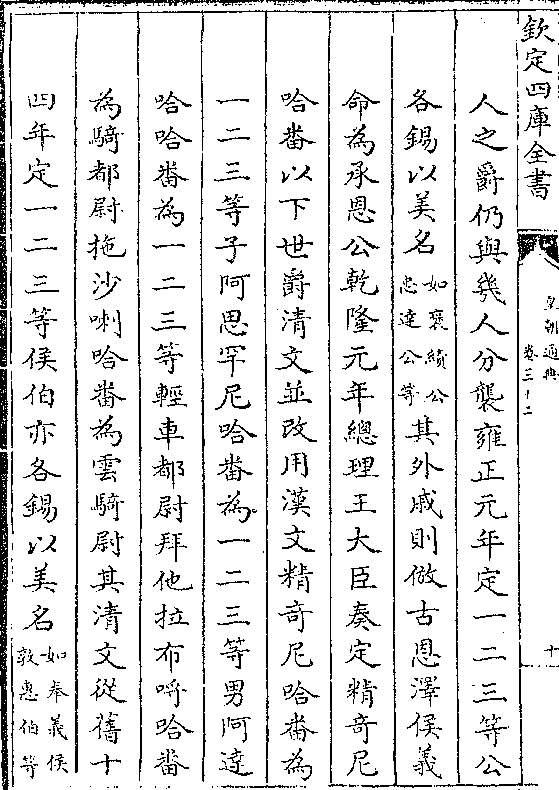 欽定四庫全書
皇朝通典
卷三十二
十
人之爵仍與幾人分襲雍正元年定一二三等公
各錫以美名如褒績公忠達公等其外戚則倣古恩澤侯義
命為承恩公乾隆元年總理王大臣奏定精奇尼
哈番以下世爵清文並改用漢文精奇尼哈番為
一二三等子阿思罕尼哈番為一二三等男阿達
哈哈番為一二三等輕車都尉拜他拉布哷哈番
為騎都尉拖沙喇哈番為雲騎尉其清文從舊十
四年定一二三等侯伯亦各錫以美名如奉義侯敦惠伯等